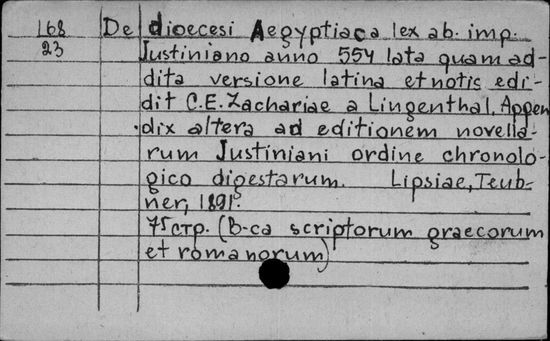 168 De dioecesi Aegyptiaca lex ab. imp.
23 Justiniano anno 554 lata quam ad-
dita versione latina et notis edi-
dit C.E. Zachariae a Lingenthal. Appen
dix altera ad editionem novella-
rum Justiniani ordine chronolo-
gico digestarum. Lipsiae, Teub-
ner, 1891.
75 стр. (B-ca scriptorum graecorum
et romanorum)